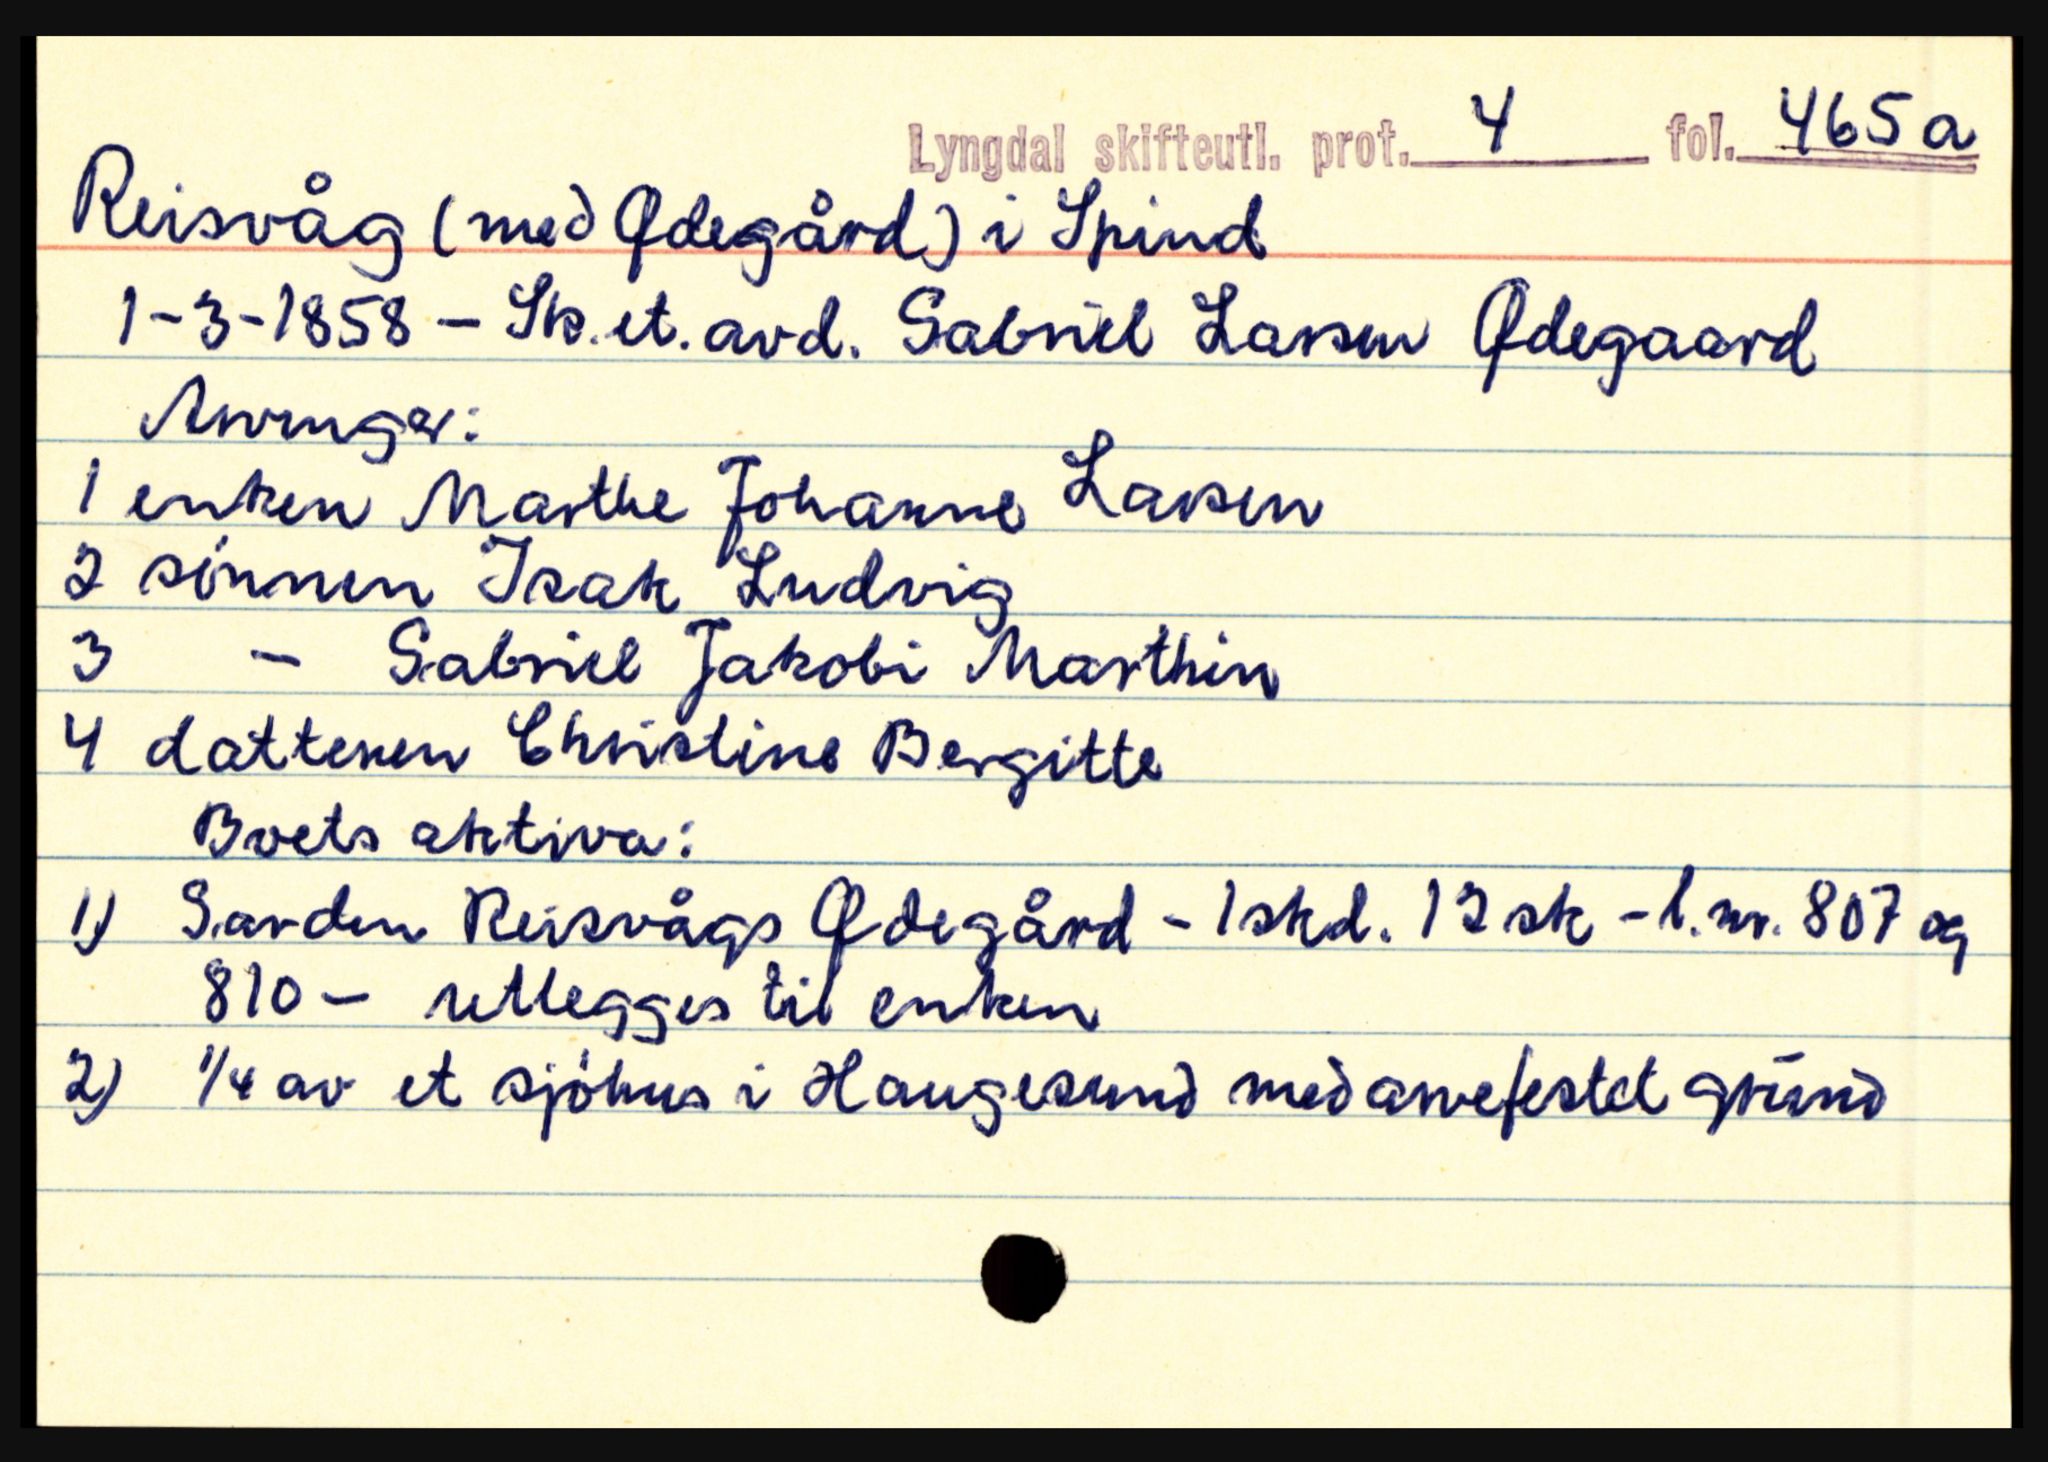 Lyngdal skifteutl. prot. 4 fol. 465a
Reisvåg (med Ødegård) i Spind
1-3-1858 - Sk. et. avd. Gabriel Larsen Ødegaard
Arvinger:
1 enken Marthe Johanne Larsen
2 sönnen Isak Ludvig
3 - Gabriel Jakobi Marthin
4 datteren Christine Bergitte
Boets aktiva:
1) Garden Reisvågs Ødegård - 1 skd. 12 sk - l.nr. 807 og
810 - utlegges til enken
2) 1/4 av et sjöhus i Haugesund med arvefestet grund